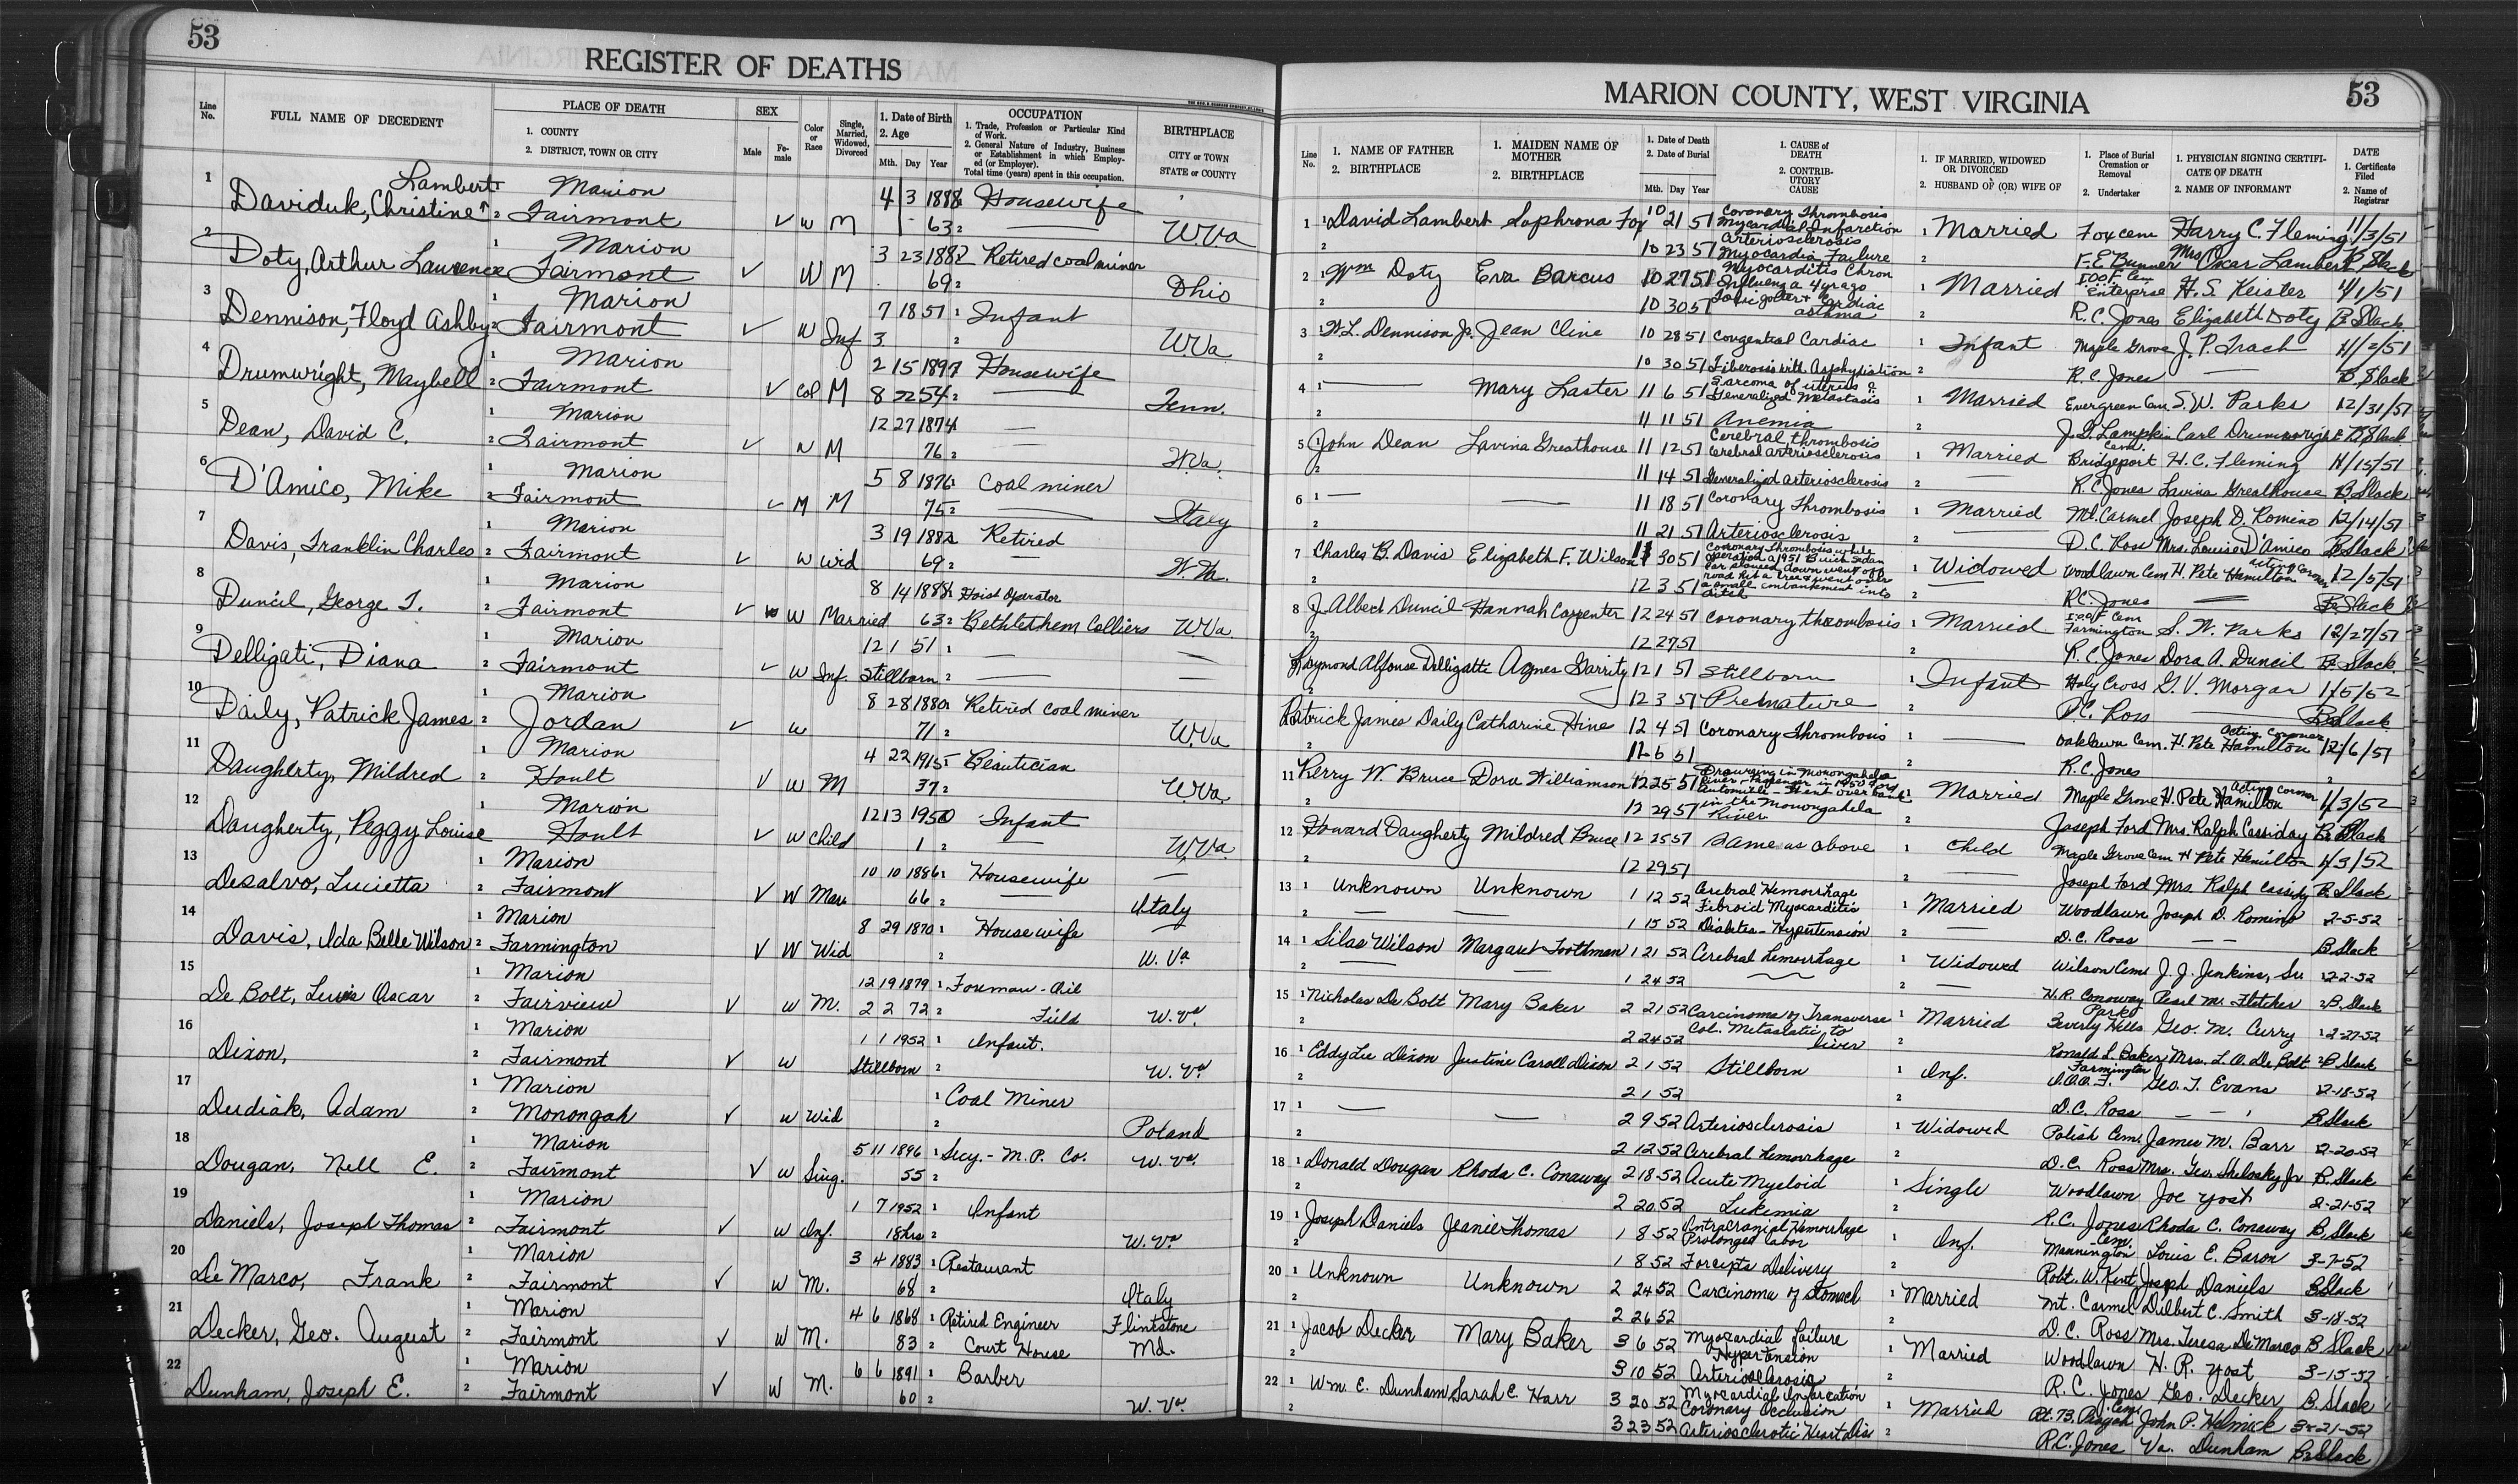 53
REGISTER OF DEATHS
Line No.
FULL NAME OF DECEDENT
PLACE OF DEATH
1. COUNTY
2. DISTRICT, TOWN OR CITY
SEX
Male
Female
Color or Race
Single, Married, Widowed, Divorced
1. Date of Birth
2. Age
Mth. Day Year
OCCUPATION
1. Trade, Profession or Particular Kind of Work.
2. General Nature of Industry, Business or Establishment in which Employed (or Employer).
Total time (years) spent in this occupation.
BIRTHPLACE
CITY or TOWN
STATE or COUNTY
1 Lambert Marion 4 3 1888 Housewife
Daviduk, Christine 2 Fairmont ✓ W M 63 2 W Va
2 1 Marion 3 23 1882 Retired coal miner
Doty, Arthur Laurence 2 Fairmont ✓ W M 69 2 Ohio
3 1 Marion 7 18 51 1 Infant
Dennison, Floyd Ashby 2 Fairmont ✓ W Inf 3 2 W.Va.
4 1 Marion 2 15 1897 Housewife
Drumwright, Maybell 2 Fairmont ✓ Col M 8 22 54 2 Tenn.
5 1 Marion 12 27 1874
Dean, David C. 2 Fairmont ✓ W M 76 2 W.Va.
6 1 Marion 5 8 1876 Coal miner
D'Amico, Mike 2 Fairmont ✓ M M 75 2 Italy
7 1 Marion 3 19 1882 Retired
Davis, Franklin Charles 2 Fairmont ✓ W Wid 69 2
8 1 Marion 8 14 1888 Hoist Operator
Duncil, George T. 2 Fairmont ✓ W Married 63 2 Bethlehem Colliers W Va.
9 1 Marion 12 1 51 1
Delligati, Diana 2 Fairmont ✓ W Inf. Stillborn 2
10 1 Marion 8 28 1880 Retired coal miner
Daily, Patrick James 2 Jordan ✓ W 71 2 W.Va
11 1 Marion 4 22 1915 Beautician
Daugherty, Mildred 2 Hoult ✓ W M 37 2 W.Va.
12 1 Marion 12 13 1950 Infant
Daugherty, Peggy Louise Hoult ✓ W Child 1 2 W.Va.
13 1 Marion 10 10 1886 1 Housewife
Desalvo, Lucietta 2 Fairmont ✓ W Mar 66 2 Italy
14 1 Marion 8 29 1870 1 Housewife
Davis, Ida Belle Wilson 2 Farmington ✓ W Wid 2 W. Va
15 1 Marion 12 19 1879 1 Foreman - Oil
De Bolt, Lewis Oscar 2 Fairview ✓ W M. 2 2 72 2 Field W. Va
16 1 Marion 1 1 1952 1 Infant.
Dixon, 2 Fairmont ✓ W Stillborn 2 W. Va
17 1 Marion 1 Coal Miner
Dudiak, Adam 2 Monongah ✓ W Wid 2 Poland
18 1 Marion 5 11 1896 1 Secy. - M.P. Co. W. Va.
Dougan, Nell E. 2 Fairmont ✓ W Sing. 55 2
19 1 Marion 1 7 1952 1 Infant
Daniels, Joseph Thomas 2 Fairmont ✓ W Inf. 18hrs 2 W. Va
20 1 Marion 3 4 1883 1 Restaurant
De Marco, Frank 2 Fairmont ✓ W M. 68 2 Italy
21 1 Marion 4 6 1868 1 Retired Engineer Flintstone
Decker, Geo. August 2 Fairmont ✓ W M. 83 2 Court House Md.
22 1 Marion 6 6 1891 1 Barber
Dunham, Joseph E. 2 Fairmont ✓ W M. 60 2 W. Va.
MARION COUNTY, WEST VIRGINIA
53
Line No.
1. NAME OF FATHER
2. BIRTHPLACE
1. MAIDEN NAME OF MOTHER
2. BIRTHPLACE
1. Date of Death
2. Date of Burial
Mth. Day Year
1. CAUSE of DEATH
2. CONTRIBUTORY CAUSE
1. IF MARRIED, WIDOWED OR DIVORCED
2. HUSBAND OF (OR) WIFE OF
1. Place of Burial Cremation or Removal
2. Undertaker
1. PHYSICIAN SIGNING CERTIFICATE OF DEATH
2. NAME OF INFORMANT
DATE
1. Certificate Filed
2. Name of Registrar
1 1 David Lambert Sophrona Fox 10 21 51 Coronary Thrombosis Myocardial Infarction 1 Married Fox cem Harry C. Fleming 11/3/51
2 10 23 51 Arteriosclerosis Myocardia Failure 2 F. E. Bunner Mrs Oscar Lambert B Slack
2 1 Wm Doty Eva Barcus 10 27 51 Myocarditis Chron Influenza 4 yr ago 1 Married I.O.O.F. Cem Enterprise H. S. Keister 11/1/51
2 10 30 51 Cardiac asthma 2 R. C. Jones Elizabeth Doty B Slack
3 1 W. L. Dennison, Jr. Jean Cline 10 28 51 Congential Cardiac 1 Infant Maple Grove J. P. Trach 11/2/51
2 10 30 51 Asphyxiation 2 R. C. Jones B Slack
4 1 Mary Laster 11 6 51 Sarcoma of uterus Generalized Metastasis 1 Married Evergreen Cem S. W. Parks 12/31/51
2 11 11 51 Anemia 2 J. G. Lampkin Carl Drumwright B Slack
5 1 John Dean Lavina Greathouse 11 12 51 Cerebral thrombosis Cerebral arteriosclerosis 1 Married Bridgeport Cem. H. C. Fleming 11/15/51
2 11 14 51 Generalized arteriosclerosis 2 R. C. Jones Lavina Greathouse B Slack
6 1 11 18 51 Coronary Thrombosis 1 Married Mt. Carmel Joseph D. Romino 12/14/51
2 11 21 51 Arteriosclerosis 2 D. C. Ross Mrs. Louise D'Amico B Slack
7 1 Charles B. Davis Elizabeth F. Wilson 11 30 51 Coronary Thrombosis while operation a 1951 Buick Sedan car slowed down went off 1 Widowed Woodlawn Cem H. Pete Hamilton acting Coroner 12/5/51
2 12 3 51 road hit a tree & went over a small embankment into ditch 2 R.C. Jones B Slack
8 J. Albert Duncil Hannah Carpenter 12 24 51 Coronary thrombosis 1 Married I.O.O.F Cem Farmington S. W. Parks 12/27/51
2 12 27 51 2 R. C. Jones Dora A. Duncil B Slack
Raymond Alfonse Delligatti Agnes Garrity 12 1 51 Stillborn 1 Infant Holy Cross G. V. Morgan 1/5/52
2 12 3 51 Premature 2 D. C. Ross B Slack
Patrick James Daily Catharine Hine 12 4 51 Coronary Thrombosis 1 Oaklawn Cem. H. Pete Hamilton Acting Coroner 12/6/51
2 12 6 51 2 R. C. Jones
11 Kerry W. Bruce Dora Williamson 12 25 51 Drowning in Monongahela River - Passenger in 1950 Ford Automobile - Went over bank 1 Married Maple Grove H. Pete Hamilton acting coroner 1/3/52
2 12 29 51 in the Monongahela River 2 Joseph Ford Mrs. Ralph Cassiday B Slack
12 Howard Daugherty Mildred Bruce 12 25 51 Same as above 1 Child Maple Grove Cem H Pete Hamilton 1/3/52
2 12 29 51 2 Joseph Ford Mrs. Ralph Cassidy B Slack
13 1 Unknown Unknown 1 12 52 Cerebral Hemorrhage Fibroid Myocarditis 1 Married Woodlawn Joseph D. Romino 2-5-52
2 1 15 52 Diabetes - Hypertension 2 D. C. Ross B Slack
14 1 Silas Wilson Margaret Toothman 1 21 52 Cerebral Hemorrhage 1 Widowed Wilson Cem J. J. Jenkins, Sr. 2-2-52
2 1 24 52 2 H. R. Conoway Pearl M. Fletcher 2 B. Slack
15 1 Nicholas De Bolt Mary Baker 2 21 52 Carcinoma of Transverse Col. Metastatic to 1 Married Beverly Hills Park Geo. M. Curry 2-27-52
2 2 24 52 liver 2 Ronald L. Baker Mrs. L. O. De Bolt 2 B Slack
16 1 Eddy Lee Dixon Justine Caroll Dixon 2 1 52 Stillborn 1 Inf. Farmington I.O.O.F. Geo. T. Evans 2-18-52
2 2 1 52 2 D. C. Ross B Slack
17 1 2 9 52 Arteriosclerosis 1 Widowed Polish Cem. James M. Barr 2-20-52
2 2 12 52 Cerebral Hemorrhage 2 D. C. Ross Mrs. Geo. Shelosky Jr B. Slack
18 1 Donald Dougan Rhoda C. Conaway 2 18 52 Acute Myeloid 1 Single Woodlawn Joe Yost 2-21-52
2 2 20 52 Lukemia 2 R. C. Jones Rhoda C. Conaway B. Slack
19 1 Joseph Daniels Jeanie Thomas 1 8 52 Intracranial Hemorrhage Prolonged labor 1 Inf. Mannington Cem. Louis E. Baron 3-7-52
2 1 8 52 Forcepts Delivery 2 Robt. W. Kent Joseph Daniels B Slack
20 1 Unknown Unknown 2 24 52 Carcinoma of Stomach 1 Married Mt. Carmel Dilbert C. Smith 3-18-52
2 2 26 52 2 D. C. Ross Mrs. Teresa De Marco B Slack
21 1 Jacob Decker Mary Baker 3 6 52 Myocardial failure Hypertension 1 Married Woodlawn H. R. Yost 3-15-52
2 3 10 52 Arteriosclerosis 2 R. C. Jones Geo. Decker B. Slack
22 1 Wm. E. Dunham Sarah E. Harr 3 20 52 Myocardial Infarcation Coronary Occlusion 1 Married Rt. 73, Cem. John P. Helmick 3-21-52
2 3 23 52 Arteriosclerotic Heart Dis. 2 R.C. Jones Va. Dunham B Slack